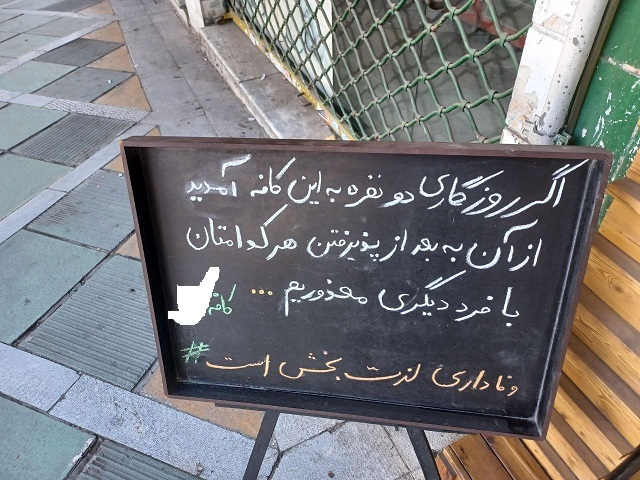 اگر روزگاری دو نفره به این کافه آمدید
از آن به بعد از پذیرفتن هرکدامتان
با فرد دیگری معذوریم ...
کافه
وفاداری لذت بخش است #